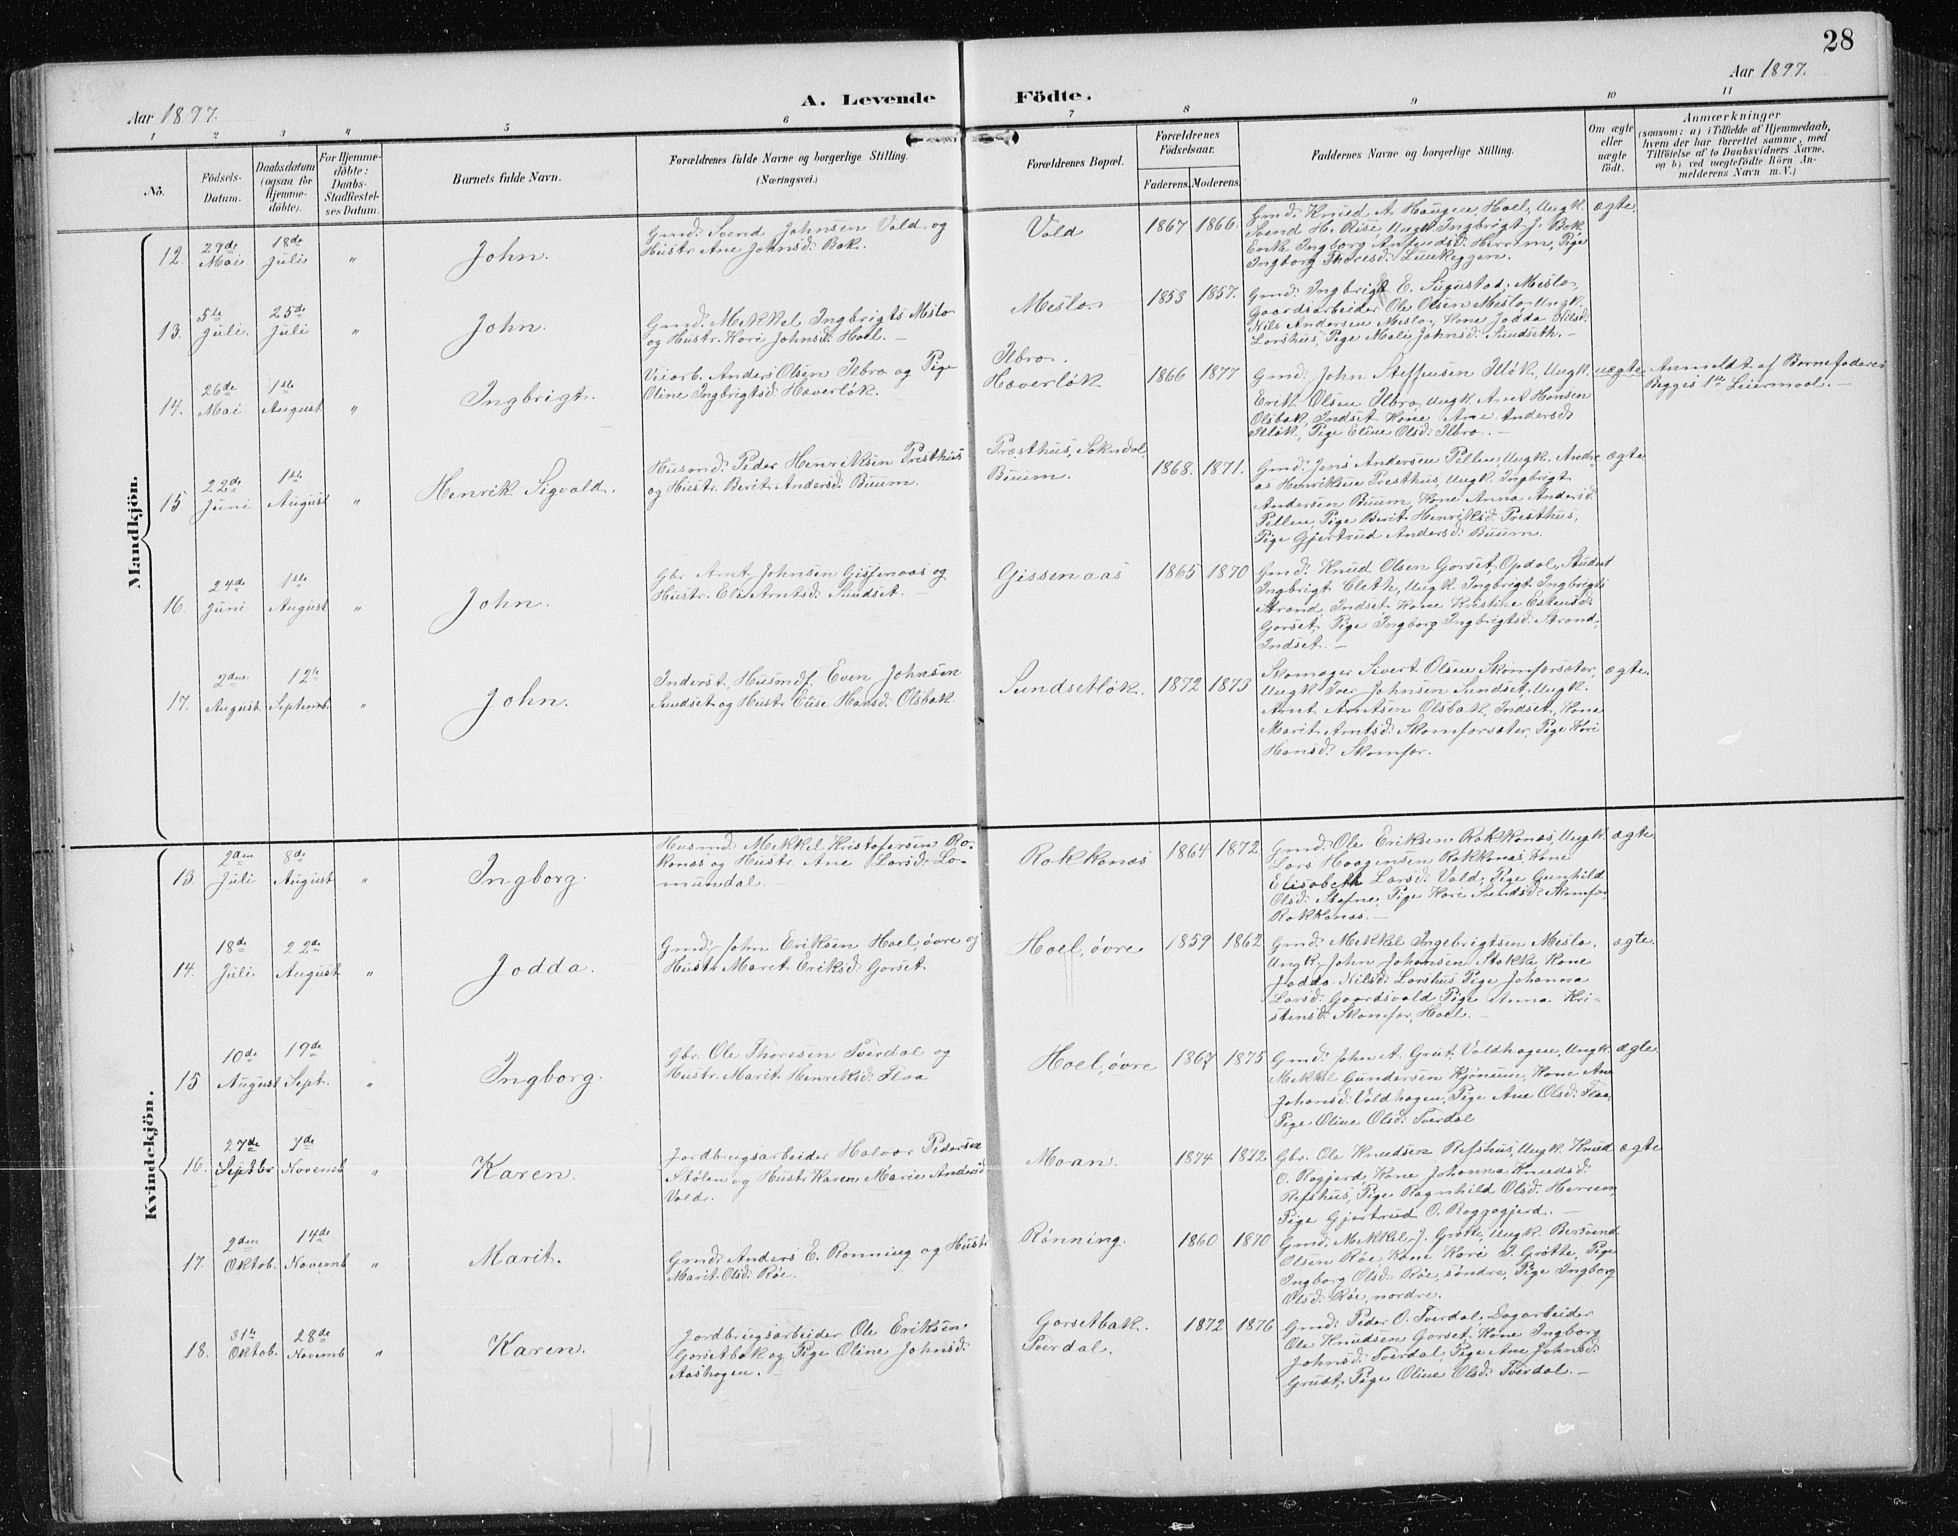 28
Aar 1897.
A. Levende Födte.
Aar 1897.
1 2 3 4 5 6 7 8 9 10 11
No.
Födsels-
Datum.
Daabsdatum
(ogsaa for
Hjemme-
döbte).
For Hjemme-
döbte:
Daabs-
Stadfæstel-
ses Datum.
Barnets fulde Navn.
Forældrenes fulde Navne og borgerlige Stilling.
(Næringsvei.)
Forældrenes Bopæl.
Forældrenes
Födselsaar.
Faderens. Moderens.
Faddernes Navne og borgerlige Stilling.
Om ægte
eller
uægte
födt.
Anmærkninger
(saasom: a) i Tilfælde af Hjemmedaab,
hvem der har forrettet samme, med
Tilföielse af to Daabsvidners Navne,
og b) ved uægtefödte Börn An-
melderens Navn m.V.)
Mandkjön.
12. 29de Mai 18de Juli " John.
Gmd. Svend Johnsen Vold og
Hustr. Ane Johnsd. Bak.
Vold 1867 1866.
Gmd. Knud A. Haugen, Hoel, Ungk.
Svend H. Rise, Ungk. Ingbrigt J. Bak,
Enke Ingborg Amundsd. Herrem, Pige
Ingborg Thoresd.
ægte
13. 5te Juli 25de Juli " John.
Gmd. Mekkel Ingbrigts. Meslo
og Hustr. Kari Johnsd. Hoel. —
Meslo 1853 1857.
Gmd. Ingbrigt E. Sugustad, Meslo,
Gaardsarbeider Ole Olsen Meslo, Ungk.
Nils Andersen Meslo, Kone Jodda Nilsd.
Larshus, Pige Mali Johnsd. Sundseth. —
14. 26de Mai 1ste August " Ingbrigt.
Veiarb. Anders Olsen Ilbro og Pige
Oline Ingbrigtsd. Haverløk.
Ilbro.
Haverløk 1866 1877
Gmd. John Steffensen Illøk, Ungk.
Erik Olsen Ilbro, Ungk. Arnt Hansen
Olsbak, Indset, Kone Ane Andersd.
Illøk, Pige Eline Olsd. Ilbro. —
uægte
Anmeldt af Barnefaderen
Begges 1ste Leiermaal. —
15 22de Juni 1ste August " Henrik Sigvald.
Husmd. Peder Henriksen Presthus
og Hustr. Berit Andersd. Buum.
Præsthus, Soknedal,
Buum. 1868. 1871.
Gmd. Jens Andersen Pellen, Ungk. Andre-
as Henriksen Presthus, Ungk. Ingbrigt
Andersen Buum, Kone Anna Andersd.
Pellen, Pige Berit Henriksd. Presthus,
Pige Gjertrud Andersd. Buum.
ægte
16. 24de Juni 1ste August " John.
Gbr. Arnt Johnsen Gissenaas og
Hustr. Eli Arntsd. Sundset. —
Gissenaas 1865 1870
Gmd. Knud Olsen Gorset, Opdal, Student
Ingbrigt Cleth, Ungk. Ingbrigt Ingbrigts.
Strand, Indset, Kone Kristine Estensd.
Gorset, Pige Ingborg Ingbrigtsd. Strand,
Indset. —
17. 2den August 12te Septemb. " John.
Inderst, Husmdf. Even Johnsen
Sundset og Hustr. Elise Hansd. Olsbak
Sundsetløk. 1872 1873
Skomager Sivert Olsen Skamfarsæter,
Ungk. Iver Johnsen Sundset, Ungk.
Arnt Arntsen Olsbak, Indset, Kone
Marit Arntsd. Skamfarsæter, Pige Kari
Hansd. Skamfar.
ægte.
Kvindekjön.
13. 2den Juli 8de August " Ingborg.
Husmd. Mekkel Kristofersen Ro-
kenæs og Hustr. Ane Larsd. Lo-
mundal.
Rokkenæs 1864 1872
Gmd. Ole Eriksen Rokkenæs, Ungk.
Lars Haagensen Rokkenæs, Kone
Elisabeth Larsd. Vold, Pige Gunhild
Olsd. Stefne, Pige Kari Svendsd. Skamfar,
Rokkenæs. —
ægte
14. 18de Juli 22de August " Jodda.
Gmd. John Eriksen Hoel, øvre og
Hustr. Marit Eriksd. Gorset.
Hoel, øvre 1859 1862
Gmd. Mekkel Ingebrigtsen Meslo,
Ungk. John Johansen Stokke, Kone
Jodda Nilsd. Larshus, Pige Johanna
Larsd. Gaardsvold, Pige Anna Kri-
stensd. Skamfar, Hoel. —
ægte.
15 10de August 19de Sept. " Ingborg.
Gbr. Ole Thoresen Sverdal og
Hustr. Marit Henriksd. Flaa
Hoel, øvre 1867 1875
Gmd. John A. Grut, Voldhagen, Ungk.
Mekkel Gundersen Kjønnen, Kone Ane
Johansd. Voldhagen, Pige Ane Olsd. Flaa,
Pige Oline Olsd. Sverdal
ægte.
16. 27de Septbr 7de Novemb " Karen.
Jordbrugsarbeider Halvor Pedersen
Stølen og Hustr. Karen Marie Andersd.
Vold.
Moan. 1874 1872
Gbr. Ole Knudsen Refshus, Ungk. Knud
O. Rogjerd, Kone Johanna Knudsd.
Refshus, Pige Ragnhild Olsd. Herrem,
Pige Gjertrud O. Roggagjerd. —
ægte
17. 2den Oktob. 14de Novemb " Marit.
Gmd. Anders E. Rønning og Hustr.
Marit Olsd. Røe.
Rønning. 1860 1870
Gmd. Mekkel J. Grøtte, Ungk. Bersvend
Olsen Røe, Kone Kari I. Grøtte, Pige
Ingborg Olsd. Røe, søndre, Pige Ingborg
Olsd. Røe, nordre.
18. 31te Oktob. 28de Novemb " Karen.
Jordbrugsarbeider Ole Eriksen
Gorsetbak og Pige Oline Johnsd.
Aashagen. —
Gorsetbak.
Sverdal. 1872 1876
Gmd. Peder O. Sverdal, Dagarbeider
Ole Knudsen Gorset, Kone Ingborg
Johnsd. Sverdal, Pige Ane Johnsd.
Grudt, Pige Oline Olsd. Sverdal. —